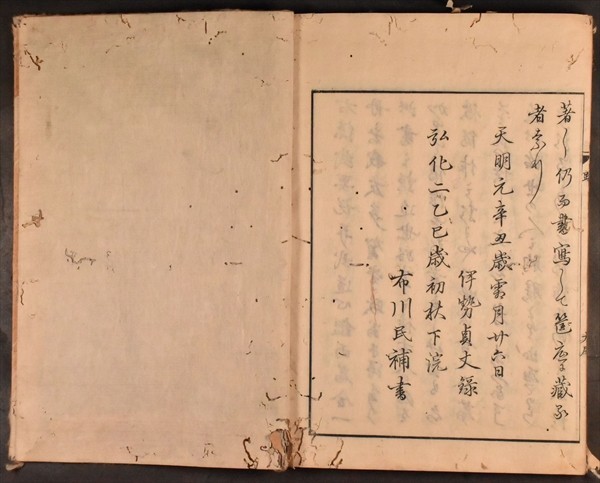 著し仍而書寫して筐底蔵る
者なり
天明元辛丑歳霜月廿六日
伊勢貞丈録
弘化二乙巳歳初秋下浣
布川民補書